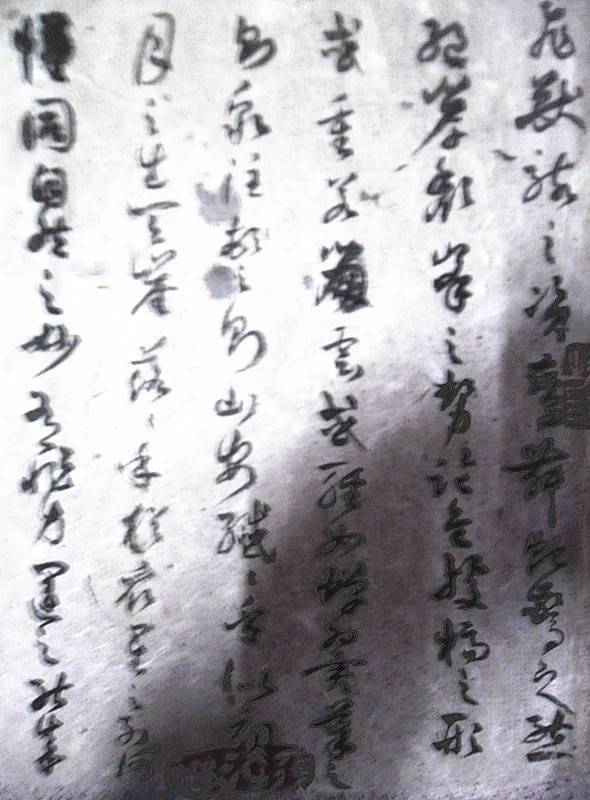 飛獸駭之資鸞舞蛇驚之態
絕岸頹峯之勢臨危據槁之形
或重若崩雲或輕如蟬翼導之
則泉注頓之則山安纖〻乎似初
月之出天崖落〻乎猶衆星之列河
漢同自然之妙有非力運之能成